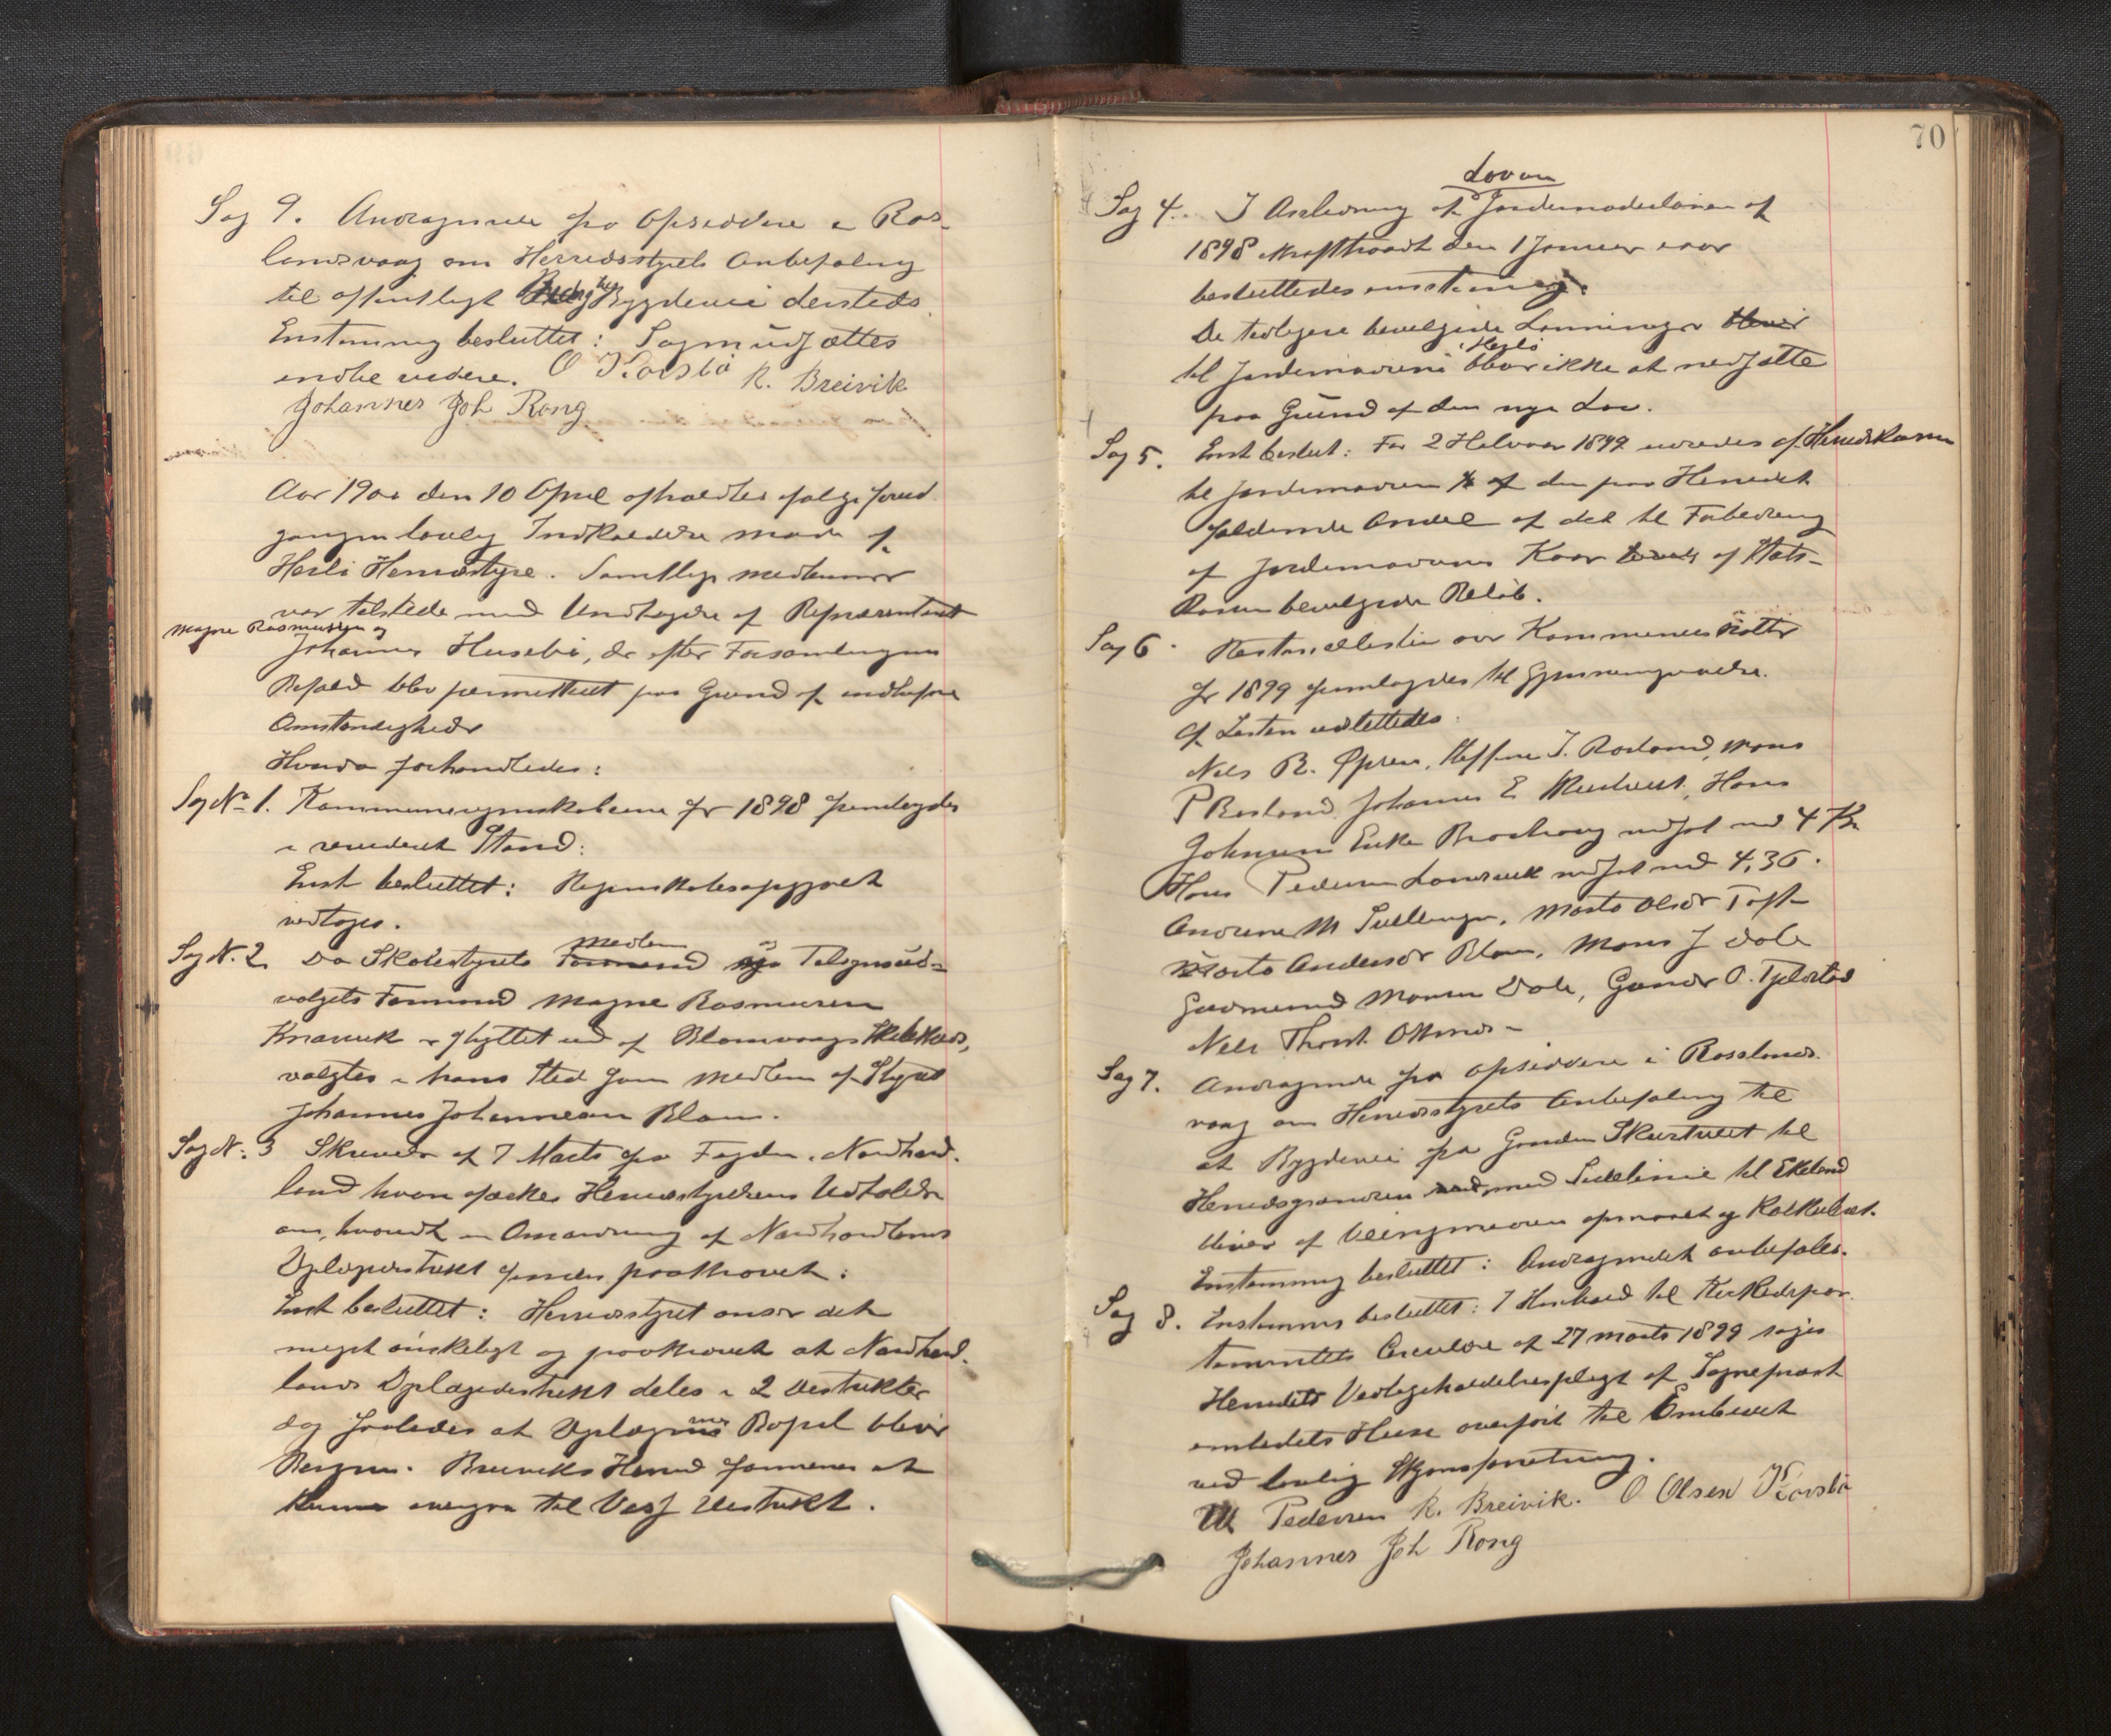 Sag 9. Andragende fra Opsiddere i Ros-
landsvaag om Herredsstyrets Anbefaling
til offentligt Bygdevei dersteds.
Enstemmig besluttet: Sagen udsættes
endnu videre. O Korsbø R. Breivik
Johannes Joh Rong
Aar 1900 den 10 April afholdtes efter forud
gangen lovlig Indkaldelse møde af
Herlø Herredstyre. Samtlige medlemmer
var tilstede med Undtagelse af Repræsentant
Magne Rasmussen og
Johannes Husebø, der efter Forsamlingens
Befald blev permitteret paa Grund af indtrufne
Omstændigheder
Hvorda forhandledes:
Sag No 1. Kommuneregnskaberne for 1898 fremlagdes
i revideret Stand:
Enst besluttet: Regnskabsopgjøret
vedtages.
Sag N. 2. Da Skolestyrets medlem og Tilsynsud-
valgets Formand Magne Rasmussen
Knarvik er flyttet ud af Blomvaags Skolekreds,
valgtes i hans Sted som medlem af Styret
Johannes Johannesen Blom.
Sag N. 3 Skrivelse af 7 Marts fra Fogden i Nordhord-
land hvori æskes Herredsstyrelsens Udtalelse
om, hvorvidt en Omordning af Nordhordlands
Dylægedistrikt findes paakrævet:
Enst besluttet: Herredsstyret anser det
meget ønskeligt og paakrævet at Nordhord-
lands Dylægedistrikt deles i 2 Distrikter
dog saaledes at Dylægernes Bopel bliver
Bergen. Bruviks Herred formenes at
kunne overgaa til Voss Distrikt.
70
Loven
Sag 4. I Anledning af Jordemoderloven af
1898 ikrafttraadt den 1 Januar 1900
besluttedes enstemmig:
De tidligere bevilgede Lønninger bliver
til Jordemødrene i Herlø bliver ikke at nedsætte
paa Grund af den nye Lov.
Sag 5. Enst beslut: For 2 Halvaar 1899 udredes af Herredskassen
til Jordemødrene ½ af den paa Herredet
faldende Andel af det til Forbedring
af Jordemødrenes Kaar af Stats-
kassen bevilgede Beløb.
Sag 6. Restancelisten over Kommuneskatter
for 1899 fremlagdes til Gjennemgaaelse.
Af Listen udslettedes:
Nels R. Steffen J. Rosland, Mons
P Rosland, Johannes E Hans
Johnsen nedsat med 4 Kr
Hans Pedersen Landsvik nedsat med 4,36.
Andrene M Sellevaagen, Marta Olsdr Toft-
Marta Andersdr Blom, Mons J Dale
Gudmund Monsen Dale, Gunder O. Tjeldstø
Nels Thorst.
Sag 7. Andragende fra Opsiddere i Roslands-
vaag om Herredsstyrets Anbefaling til
at Bygdevei fra Gaarden til
Herredsgrændsen med Sidelinie til Ekeland
bliver af Veiingeniøren opmaalt og kalkuleret.
Enstemmig besluttet: Andragendet anbefales.
Sag 8. Enstemmig besluttet: I Henhold til Kirkedepar-
tementets Circulære af 27 marts 1899 søges
Herredets Vedligeholdelsespligt af Sognepræst
embedets Huse overført til Embedet
ved lovlig Skjønsforretning.
M Pedersen R. Breivik. O Olsen Korsbø
Johannes Joh Rong